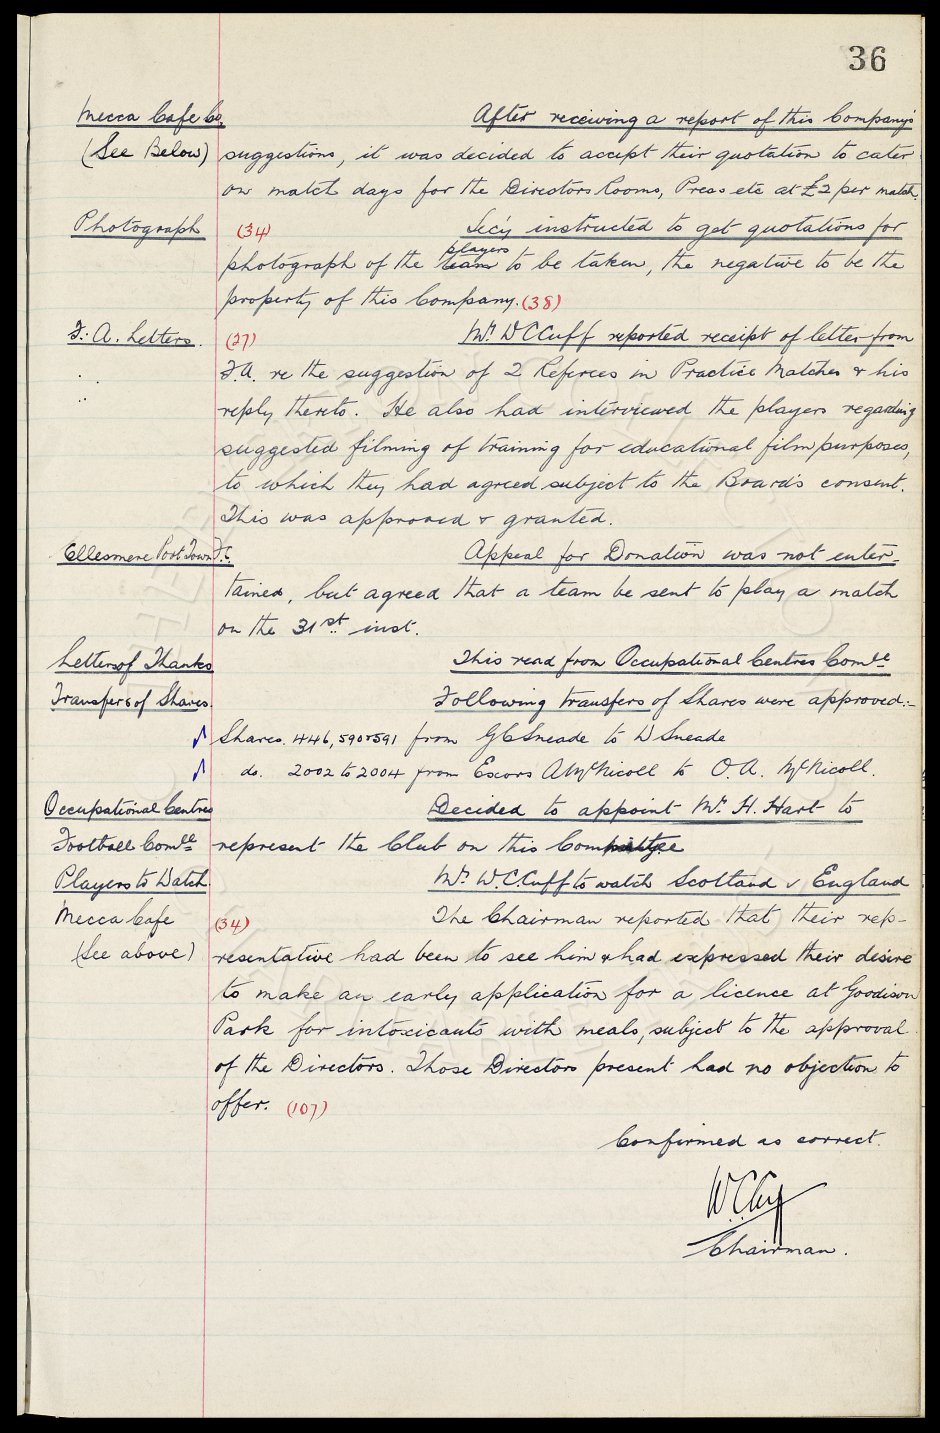 36
Mecca Cafe Co. After receiving a report of this Company's
(See Below) suggestions, it was decided to accept their quotation to cater
on match days for the Directors Rooms, Press etc at £2 per match.
Photograph (34) Sec'y instructed to get quotations for
players
photograph of the team to be taken, the negative to be the
property of this Company. (38)
F. A. Letters. (27) Mr. W C Cuff reported receipt of letter from
F.A. re the suggestion of 2 Referees in Practice Matches & his
reply thereto. He also had interviewed the players regarding
suggested filming of training for educational film purposes,
to which they had agreed subject to the Board's consent.
This was approved & granted.
Ellesmere Port Town F.C. Appeal for Donation was not enter-
tained, but agreed that a team be sent to play a match
on the 31st. inst.
Letters of Thanks This read from Occupational Centres Comtee
Transfers of Shares. Following transfers of Shares were approved:-
Shares. 446, 590&591 from G C Sneade to W Sneade
do. 2002 to 2004 from Excors A McNicoll to O. A. McNicoll.
Occupational Centres Decided to appoint Mr. H. Hart to
Football Comtee represent the Club on this Committee
Players to Watch. Mr. W.C. Cuff to watch Scotland v England
Mecca Cafe (34) The Chairman reported that their rep-
(See above) resentative had been to see him & had expressed their desire
to make an early application for a licence at Goodison
Park for intoxicants with meals, subject to the approval
of the Directors. Those Directors present had no objection to
offer. (107)
Confirmed as correct.
W.C. Cuff
Chairman.